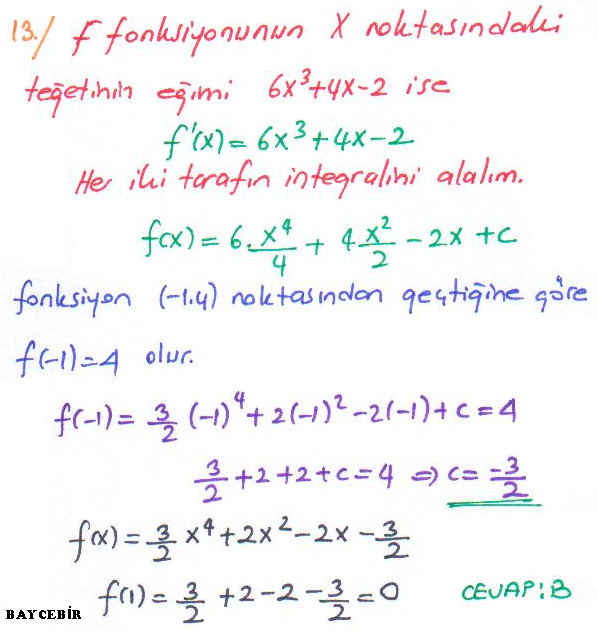 13./ f fonksiyonunun X noktasındaki
teğetinin eğimi 6x³+4x-2 ise
f'(x)= 6x³+4x-2
Her iki tarafın integralini alalım.
f(x) = 6.x⁴/4 + 4x²/2 - 2x + c
fonksiyon (-1.4) noktasından geçtiğine göre
f(-1)=4 olur.
f(-1)= 3/2 (-1)⁴+2(-1)²-2(-1)+c=4
3/2+2+2+c=4 ⇒ c=-3/2
f(x)=3/2x⁴+2x²-2x-3/2
f(1)=3/2+2-2-3/2=0 CEVAP:B
BAYCEBİR